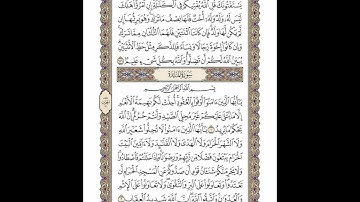 يَسْتَفْتُونَكَ قُلِ ٱللَّهُ يُفْتِيكُمْ فِى ٱلْكَلَٰلَةِ إِنِ ٱمْرُؤٌا۟ هَلَكَ
لَيْسَ لَهُۥ وَلَدٌ وَلَهُۥٓ أُخْتٌ فَلَهَا نِصْفُ مَا تَرَكَ وَهُوَ يَرِثُهَآ إِن
لَّمْ يَكُن لَّهَا وَلَدٌ فَإِن كَانَتَا ٱثْنَتَيْنِ فَلَهُمَا ٱلثُّلُثَانِ مِمَّا تَرَكَ
وَإِن كَانُوٓا۟ إِخْوَةً رِّجَالًا وَنِسَآءً فَلِلذَّكَرِ مِثْلُ حَظِّ ٱلْأُنثَيَيْنِ
يُبَيِّنُ ٱللَّهُ لَكُمْ أَن تَضِلُّوا۟ وَٱللَّهُ بِكُلِّ شَىْءٍ عَلِيمٌۢ ١٧٦
سُورَةُ المَائِدَةِ
بِسْمِ ٱللَّهِ ٱلرَّحْمَٰنِ ٱلرَّحِيمِ
يَٰٓأَيُّهَا ٱلَّذِينَ ءَامَنُوٓا۟ أَوْفُوا۟ بِٱلْعُقُودِ أُحِلَّتْ لَكُم بَهِيمَةُ ٱلْأَنْعَٰمِ
إِلَّا مَا يُتْلَىٰ عَلَيْكُمْ غَيْرَ مُحِلِّى ٱلصَّيْدِ وَأَنتُمْ حُرُمٌ إِنَّ ٱللَّهَ
يَحْكُمُ مَا يُرِيدُ ١ يَٰٓأَيُّهَا ٱلَّذِينَ ءَامَنُوا۟ لَا تُحِلُّوا۟ شَعَٰٓئِرَ ٱللَّهِ
وَلَا ٱلشَّهْرَ ٱلْحَرَامَ وَلَا ٱلْهَدْىَ وَلَا ٱلْقَلَٰٓئِدَ وَلَآ ءَآمِّينَ ٱلْبَيْتَ
ٱلْحَرَامَ يَبْتَغُونَ فَضْلًا مِّن رَّبِّهِمْ وَرِضْوَٰنًا وَإِذَا حَلَلْتُمْ فَٱصْطَادُوا۟
وَلَا يَجْرِمَنَّكُمْ شَنَـَٔانُ قَوْمٍ أَن صَدُّوكُمْ عَنِ ٱلْمَسْجِدِ ٱلْحَرَامِ أَن
تَعْتَدُوا۟ وَتَعَاوَنُوا۟ عَلَى ٱلْبِرِّ وَٱلتَّقْوَىٰ وَلَا تَعَاوَنُوا۟ عَلَى ٱلْإِثْمِ
وَٱلْعُدْوَٰنِ وَٱتَّقُوا۟ ٱللَّهَ إِنَّ ٱللَّهَ شَدِيدُ ٱلْعِقَابِ ٢